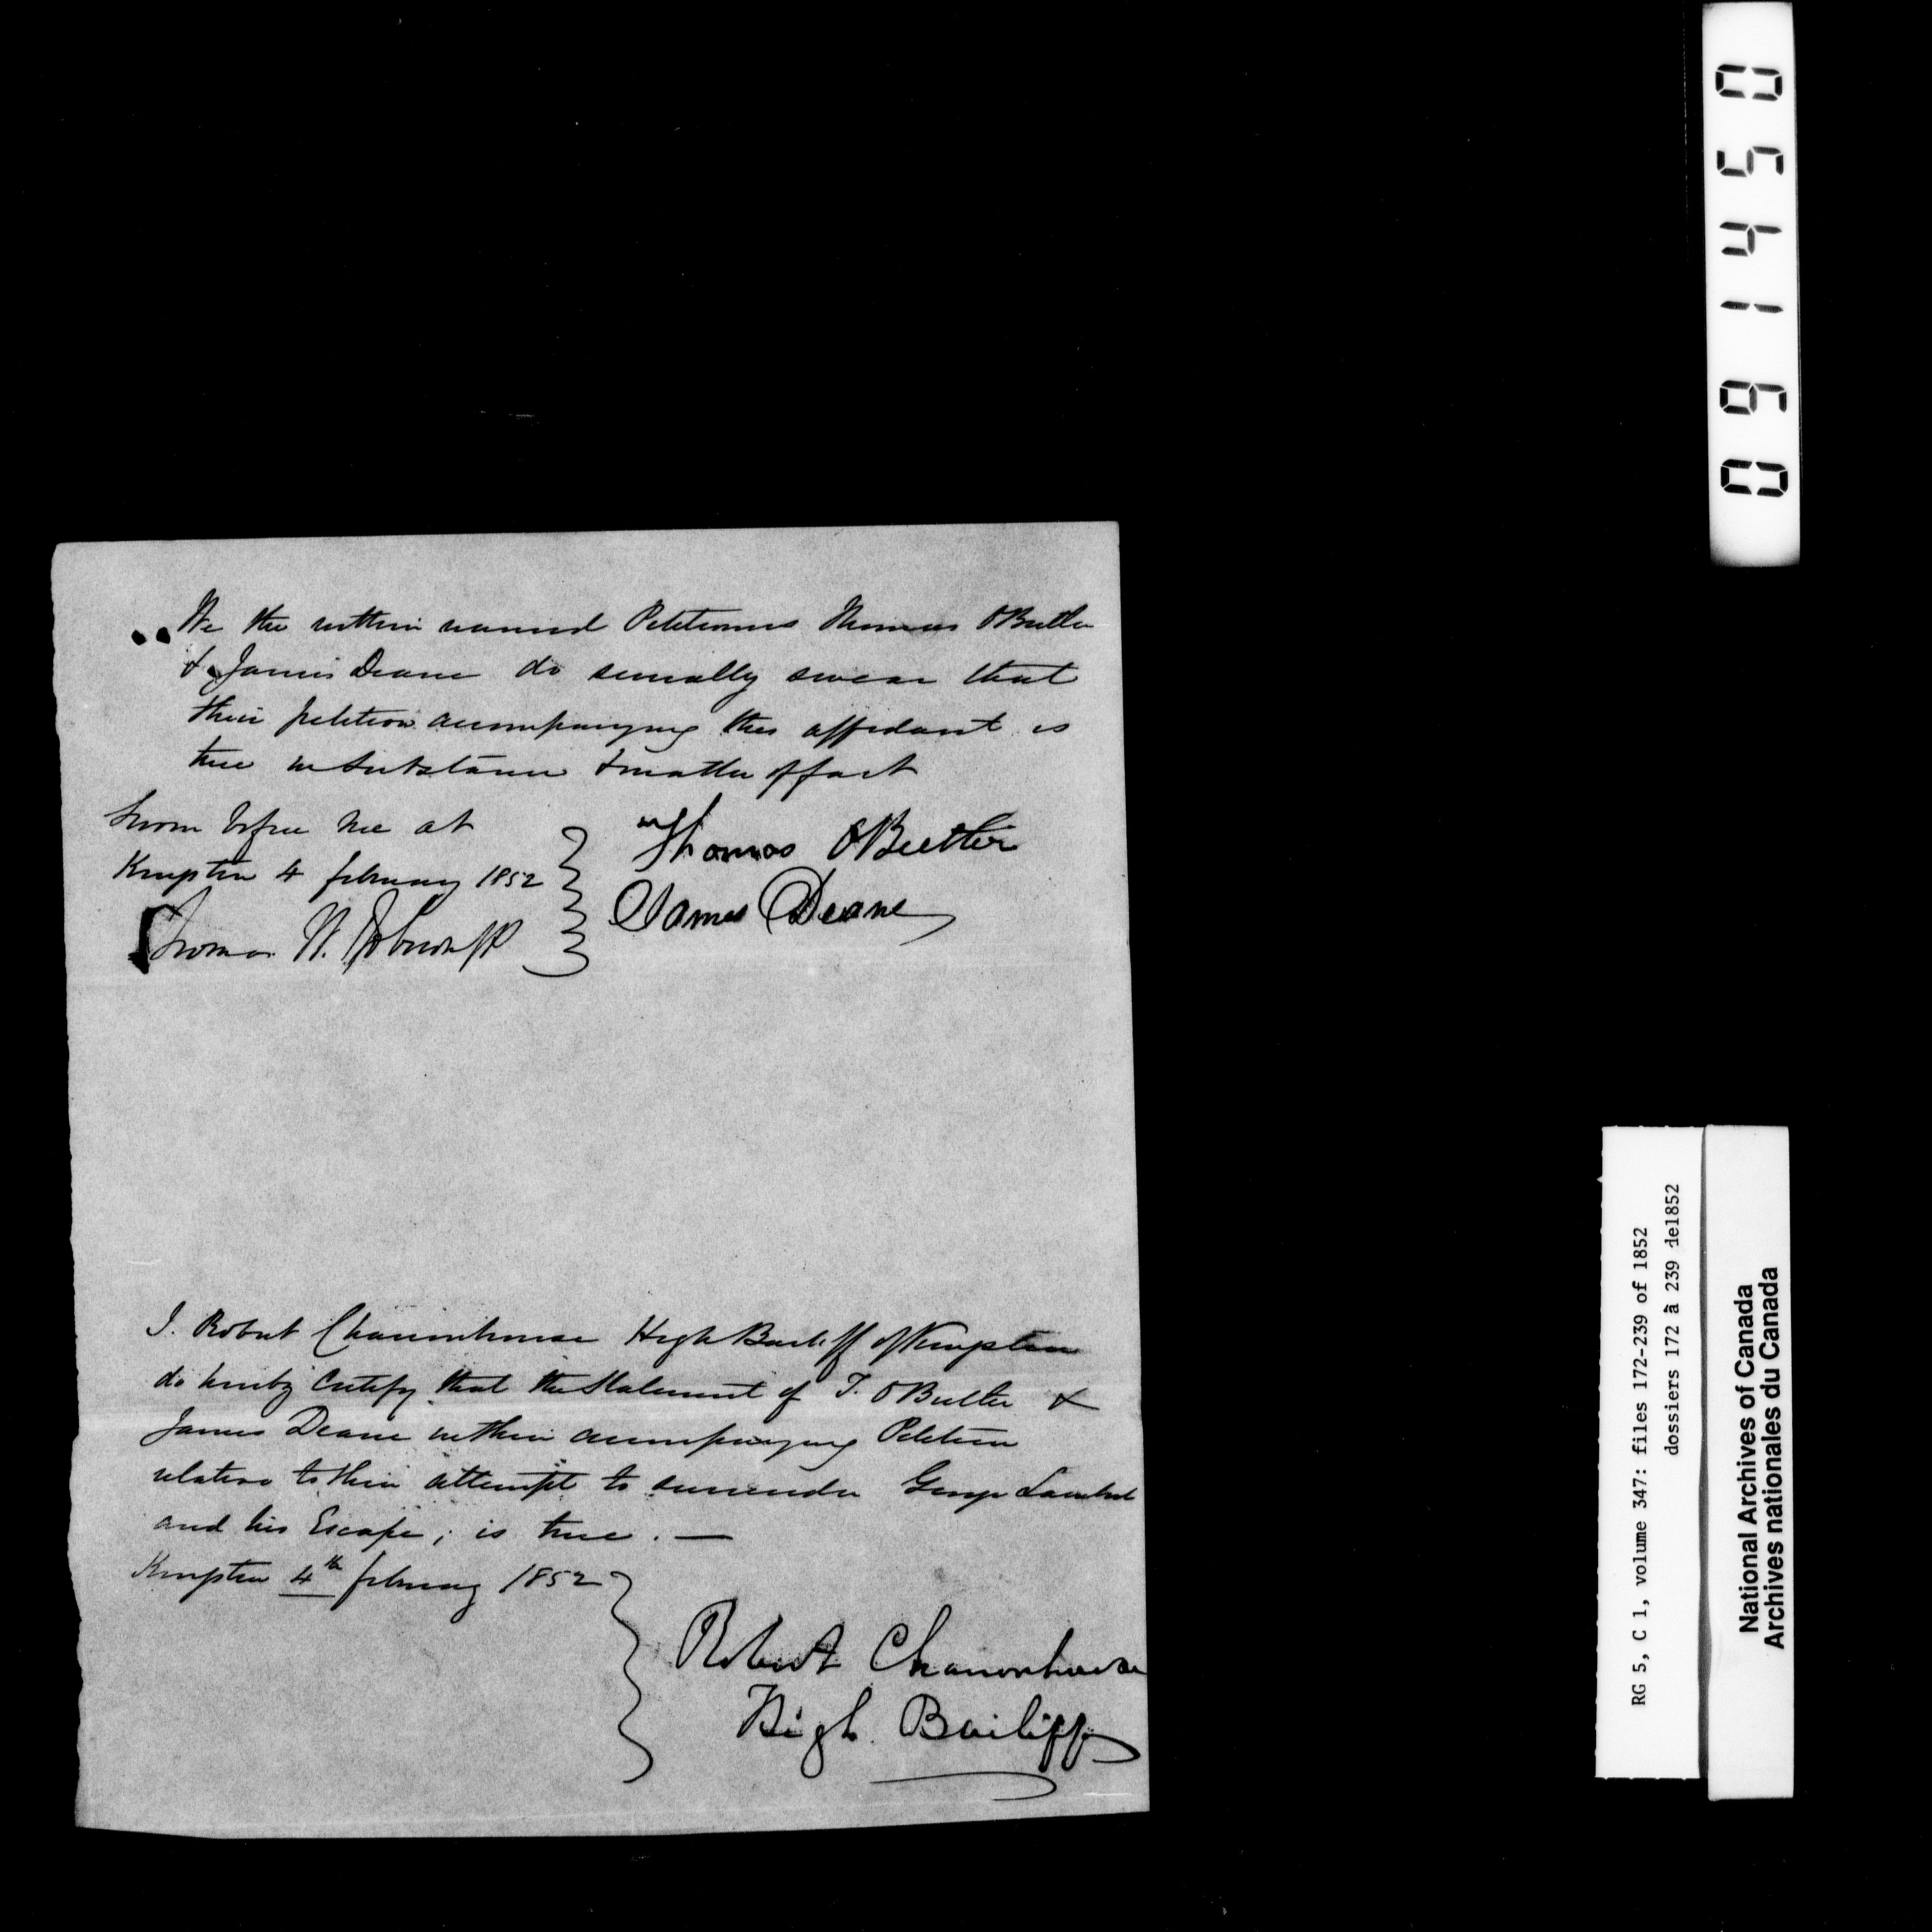 We the within named Petitioners Thomas OButler
& James Deane do severally swear that
their petition accompanying this affidavit is
true in Substance & matter of fact
Sworn before me at
Kempton 4 february 1852
Thomas N.
Thomas OButler
James Deane
I. Robert Channonhouse High Bailiff of Kempton
do hereby Certify that the Statement of T. OButler &
James Deane within accompanying Petition
relative to their attempt to surrender George Lambert
and his Escape; is true. —
Kempton 4th february 1852
Robert Channonhouse
High Bailiff
0 9 1 4 5 0
RG 5, C 1, volume 347: files 172-239 of 1852
dossiers 172 à 239 de1852
National Archives of Canada
Archives nationales du Canada